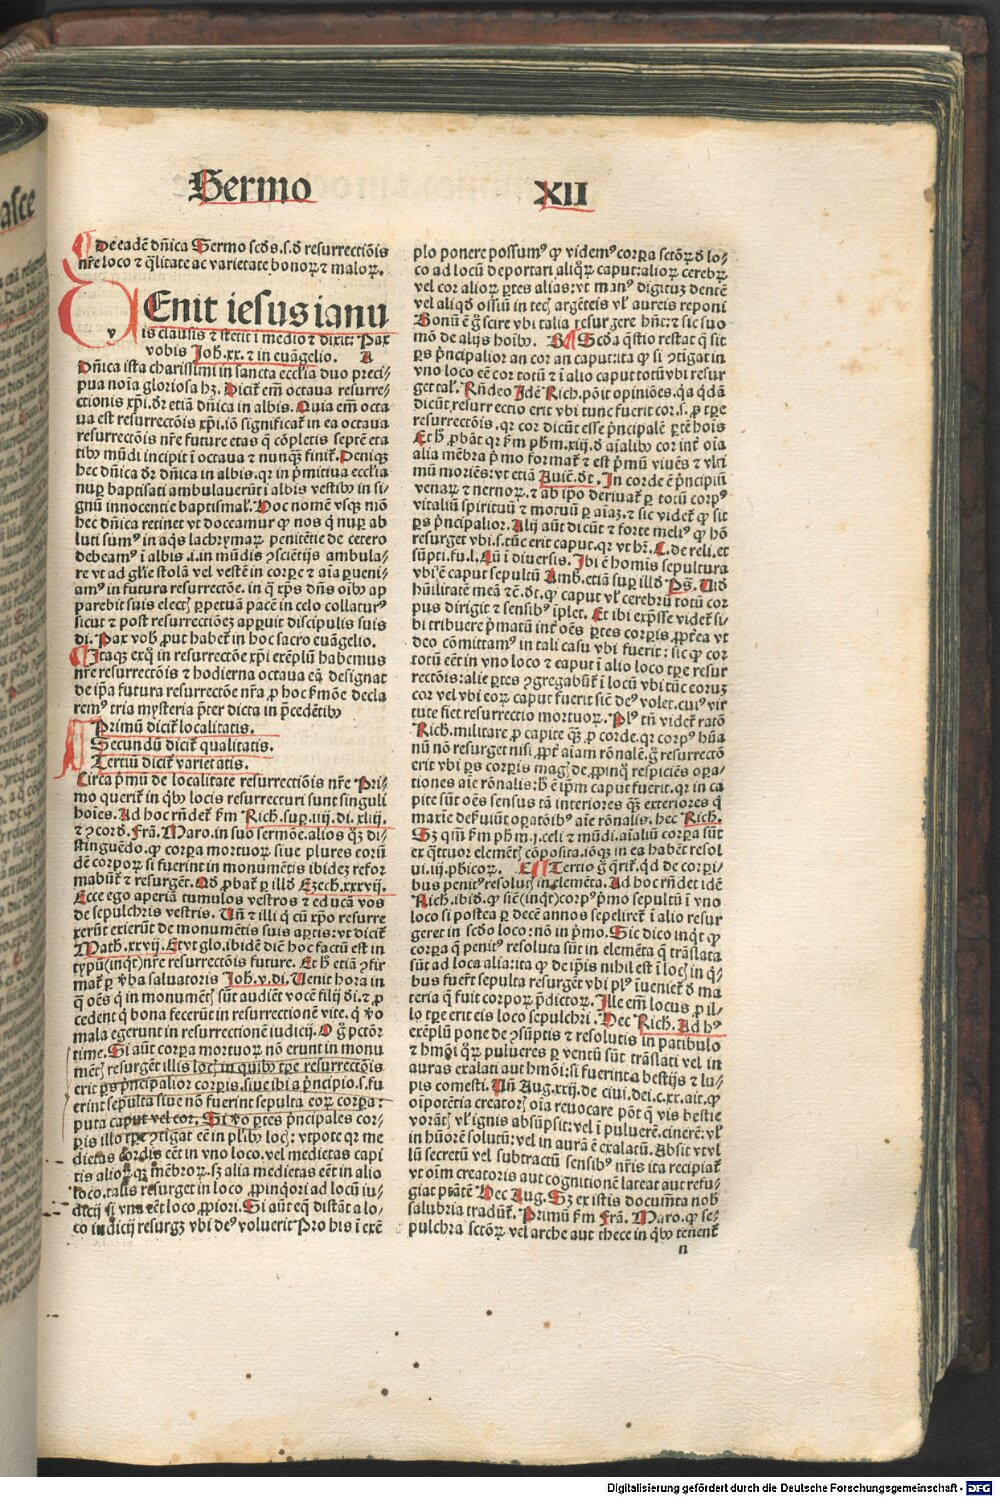 Sermo XII
De eadē dn̄ica Sermo scđs.s.đ resurrectiōis
nr̄e loco ⁊ q̄litate ac varietate bonoꝝ ⁊ maloꝝ.
VEnit iesus ianu
v
is clausis ⁊ stetit ī medio ⁊ dixit: Pax
vobis Joh̄.xx.⁊ in euāgelio. A
Dn̄ica ista charissimi in sancta eccľia duo preci-
pua noīa gloriosa hꝫ. Dicit᷑ em̄ octaua resurre-
ctionis xp̄i.đr etiā dn̄ica in albis. Quia em̄ octa
ua est resurrectōis xp̄i.iō significat᷑ in ea octaua
resurrectōis nr̄e future etas q̄ cōpletis septē eta
tibꝰ mūdi incipit ī octaua ⁊ nunqꝫ finit᷑. Deniqꝫ
hec dn̄ica đr dn̄ica in albis.qr in pʳmitiua eccľia
nuꝑ baptisati ambulauerūt ī albis vestibꝰ in si-
gnū innocentie baptismaľ. Hoc nomē vsqꝫ mō
hec dn̄ica retinet vt doceamur ꝙ nos q̇ nuꝑ ab
luti sumꝰ in aq̄s lachrymaꝝ penitētie de cetero
debeamꝰ ī albis .i. in mūdis ꝯsciētijs ambula-
re vt ad gľie stolā vel vestē in corꝑe ⁊ aīa ꝑueni-
amꝰ in futura resurrectōe. in q̄ xp̄s dn̄s oībꝰ ap
parebit suis elect̄ ꝑpetuā pacē in celo collaturꝰ
sicut ⁊ post resurrectiōeꝫ apꝑuit discipulis suis
di. Pax vob̄ ꝓut habet᷑ in hoc sacro euāgelio.
Itaqꝫ exq̊ in resurrectōe xp̄i exēplū habemus
nr̄e resurrectōis ⁊ hodierna octaua eā designat
de ip̄a futura resurrectōe nr̄a ꝓ hoc ẜmōe decla
remꝰ tria mysteria pʳter dicta in pʳcedētibꝰ
Primū dicit᷑ localitatis.
Secundū dicit᷑ qualitatis.
Tertiū dicit᷑ varietatis.
Circa pʳmū de localitate resurrectiōis nr̄e Pri-
mo querit᷑ in q̇bꝰ locis resurrecturi sunt singuli
hoīes. Ad hoc rn̄det᷑ ẜm Rich̄.suꝑ.iiij.di.xliij.
⁊ ꝯcorđ. Frā. Maro.in suo sermōe.alios q̄ꝫ di-
stinguēdo.ꝙ corpora mortuoꝝ siue plures eorū
dē corpoꝝ si fuerint in monumētis ibideꝫ refor
mabūt᷑ ⁊ resurgēt. Qđ ꝓbat᷑ ꝑ illđ Ezech̄.xxxvij.
Ecce ego aperiā tumulos vestros ⁊ educā vos
de sepulchris vestris. Vn̄ ⁊ illi q̇ cū xp̄o resurre
xerūt exierūt de monumētis suis aꝑtis:vt dicit᷑
Math̄.xxvij. Et vt glo.ibidē dn̄ hoc factū est in
typū(inqͭ)nr̄e resurrectōis future. Et h̄ etiā ꝯfir
mat᷑ ꝑ v̄ba saluatoris Joh̄.v.di. Uenit hora in
q̄ oēs q̇ in monumēt̄ sūt audiēt vocē filij đi.⁊ ꝓ
cedent q̇ bona fecerūt in resurrectionē vite.q̇ v̄o
mala egerunt in resurrectionē iudicij. O g̊ pctōr
time. Si aūt corꝑa mortuoꝝ nō erunt in monu
mēt̄ resurgēt illis loc̄ in quibꝰ tꝑe resurrectōis
erit ꝑs pʳncipalior corꝑis.siue ibi a pʳncipio.s.fu
erint sepulta siue nō fuerint sepulta eoꝝ corꝑa:
puta caput vel cor. Si v̄o ꝑtes pʳncipales cor-
ꝑis illo tꝑe ꝯtigat eē in pľibꝰ loc̄: vtpote qr me
dietas cordis eēt in vno loco.vel medietas capi
tis alioꝝqꝫ mēbroꝝ.sꝫ alia medietas eēt in alio
loco.talis resurget in loco ꝓpinq̇ori ad locū iu-
dicij si vna eēt loco ꝓpiori. Si aūt eq̄ distāt a lo-
co iudicij resurgꝫ vbi deꝰ voluerit Pro bis ī exē
plo ponere possumꝰ ꝙ videmꝰ corꝑa sctōꝝ đ lo-
co ad locū deportari aliq̄ꝝ caput:alioꝝ cerebꝝ
vel cor alioꝝ ꝑtes alias:vt manꝰ digituꝫ dentē
vel aliqđ ossiū in tec̄ argēteis vľ aureis reponi
Bonū ē g̊ scire vbi talia resurgere hn̄t:⁊ sic suo
mō de alijs hoībꝰ. B Scđa q̄stio restat q̄ sit
ꝑs pʳncipalior an cor an caput:ita ꝙ si ꝯtigat in
vno loco eē cor totū ⁊ ī alio caput totū vbi resur
get taľ. Rn̄deo Idē Rich̄.pōit opiniōes.q̄a q̇dā
dicūt resurrectio erit vbi tunc fuerit cor.s. ꝓ tꝑe
resurrectōis.qr cor dicūt esse pʳncipalē ꝑtē hoīs
Et h̄ ꝓbāt qr ẜm ph̄m.xiij.đ aīalibꝰ cor int᷑ oīa
alia mēbra pʳmo format᷑ ⁊ est pʳmū viuēs ⁊ vľti
mū moriēs:vt etiā Auic̄.đt. In corde ē pʳncipiū
venaꝝ ⁊ neruoꝝ.⁊ ab ip̄o deriuat᷑ ꝑ totū corpꝰ
vitaliū spirituū ⁊ motuū ꝑ aīaꝫ.⁊ sic videt᷑ ꝙ sit
ꝑs pʳncipalior. Alij aūt dicūt ⁊ forte meliꝰ ꝙ hō
resurget vbi.s.tūc erit caput.qr vt hr̄. C.de reli.et
sūpti.fu.l. Cū ī diuersis. Ibi ē homīs sepultura
vbi ē caput sepultū Amb̄.etiā suꝑ illđ Ps̄. Vid̄
hūilitatē meā ⁊c̄.đt.ꝙ caput vľ cerebrū totū cor
pus dirigit ⁊ sensibꝰ īplet. Et ibi exp̄sse videt᷑ si-
bi tribuere pʳmatū int᷑ oēs ꝑtes corꝑis.ꝓpt̄ea vt
deo cōmittamꝰ in tali casu vbi fuerit: sic ꝙ cor
totū eēt in vno loco ⁊ caput ī alio loco tꝑe resur
rectōis:alie ꝑtes ꝯgregabūt᷑ ī locū vbi tūc eoruꝫ
cor vel vbi eoꝝ caput fuerit sic̄ deꝰ volet.cuiꝰ vir
tute fiet resurrectio mortuoꝝ. Plꝰ tn̄ videt᷑ ratō
Rich̄.militare ꝓ capite q̄ꝫ ꝓ corde.qr corpꝰ hūa
nū nō resurget nisi ꝓpt᷑ aīam rōnalē.g̊ resurrectō
erit vbi ꝑs corꝑis maḡ de ꝓpinq̊ respiciēs oꝑa-
tiones aīe rōnalis:h̄ ē ip̄m caput fuerit.qr in ca
pite sūt oēs sensus tā interiores q̄ꝫ exteriores q̇
maxīe deẜuiūt oꝑatōibꝰ aīe rōnalis.hec Rich̄.
Sꝫ qm̄ ẜm ph̄m.j.celi ⁊ mūdi.aīaliū corꝑa sūt
ex q̄ttuor elemēt̄ cōposita.iōqꝫ in ea habēt resol
ui.iij.ph̄icoꝝ. C Tertio g̊ q̄rit᷑.qđ de corꝑi-
bus penitꝰ resolut̄ in elemēta. Ad hoc rn̄det idē
Rich̄.ibiđ.ꝙ sic̄(inqͭ)corpꝰ pʳmo sepultū ī vno
loco si postea ꝑ decē annos sepeliret᷑ ī alio resur
geret in scđo loco: nō in pʳmo. Sic dico inqͭt ꝙ
corꝑa q̄ penitꝰ resoluta sūt in elemēta q̄ trāslata
sūt ad loca alia:ita ꝙ de ip̄is nihil est ī loc̄ in q̇-
bus fuer̄t sepulta resurgēt vbi plꝰ īueniet᷑ đ ma
teria q̄ fuit corpoꝝ pʳdictoꝝ. Ille em̄ locus ꝓ il-
lo tꝑe erit eis loco sepulchri. Hec Rich̄. Ad hꝰ
exēplū pone de ꝯsūptis ⁊ resolutis in patibulo
⁊ hm̄oi q̄ꝝ pulueres ꝑ ventū sūt trāslati vel in
auras exalati aut hm̄oi:si fuerint a bestijs ⁊ lu-
pis comesti. Vn̄ Aug.xxij.de ciui.dei.c.xx.ait.ꝙ
oīpotētia creatoris oīa reuocare pōt q̄ vis bestie
vorāt̄ vľ ignis absūpsit:vel ī puluerē.cinerē:vľ
in hūorē solutū:vel in aurā ē exalatū. Absit vt vl
lū secretū vel subtractū sensibꝰ nr̄is ita recipiat᷑
vt oīm creatoris aut cognitionē lateat aut refu-
giat ptātē Hec Aug. Sꝫ ex istis documēta nob̄
salubria tradūt᷑. Primū ẜm Frā. Maro.ꝙ se-
pulchra sctōꝝ vel arche aut thece in q̇bꝰ tenent᷑
n
Digitalisierung gefördert durch die Deutsche Forschungsgemeinschaft - DFG